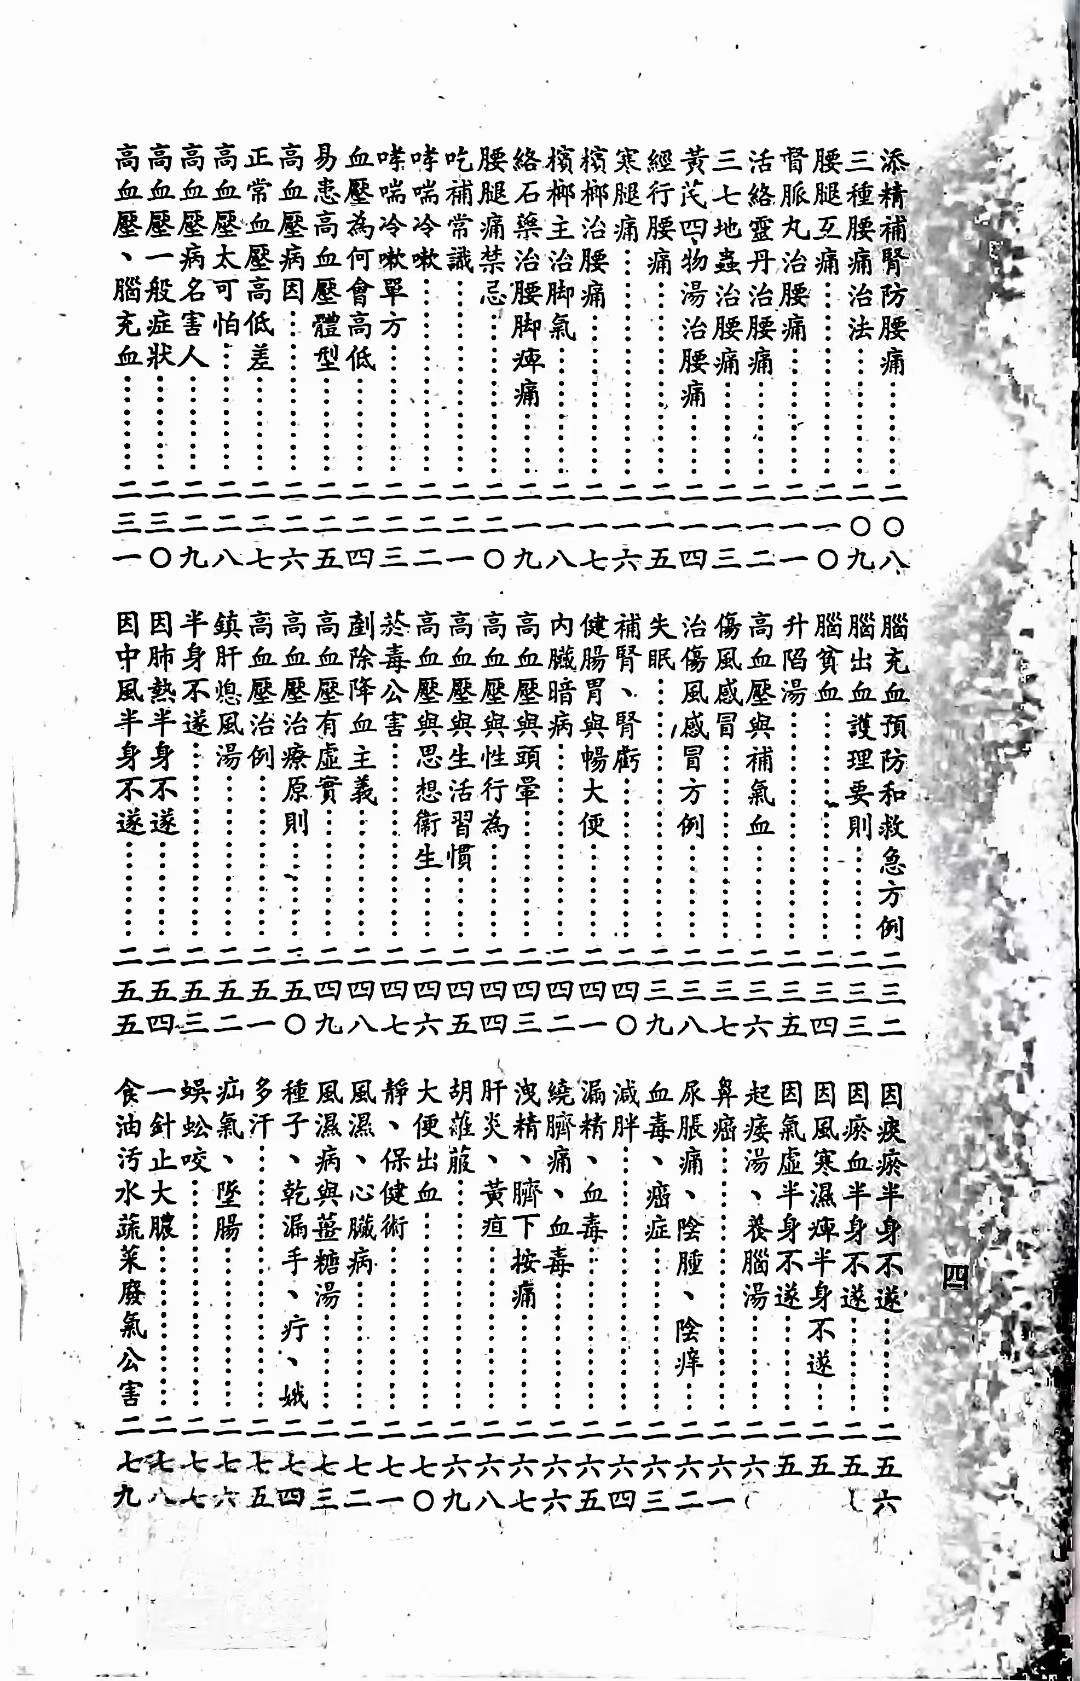 添精補腎防腰痛……二〇八
三種腰痛治法……二〇九
腰腿互痛……二一〇
督脈丸治腰痛……二一一
活絡靈丹治腰痛……二一二
三七地蟲治腰痛……二一三
黃芪四物湯治腰痛……二一四
經行腰痛……二一五
寒腿痛……二一六
檳榔治腰痛……二一七
檳榔主治脚氣……二一八
絡石藥治腰脚痺痛……二一九
腰腿痛禁忌……二二〇
吃補常識……二二一
哮喘冷嗽……二二二
哮喘冷嗽單方……二二三
血壓為何會高低……二二四
易患高血壓體型……二二五
高血壓病因……二二六
正常血壓高低差……二二七
高血壓太可怕……二二八
高血壓病名害人……二二九
高血壓一般症狀……二三〇
高血壓、腦充血……二三一
腦充血預防和救急方例二三二
腦出血護理要則……二三三
腦貧血……二三四
升陷湯……二三五
高血壓與補氣血……二三六
傷風感冒……二三七
治傷風感冒方例……二三八
失眠……二三九
補腎、腎虧……二四〇
健腸胃與暢大便……二四一
內臟暗病……二四二
高血壓與頭暈……二四三
高血壓與性行為……二四四
高血壓與生活習慣……二四五
高血壓與思想衛生……二四六
菸毒公害……二四七
剷除降血主義……二四八
高血壓有虛實……二四九
高血壓治療原則……二五〇
高血壓治例……二五一
鎮肝熄風湯……二五二
半身不遂……二五三
因肺熱半身不遂……二五四
因中風半身不遂……二五五
因痰瘀半身不遂……二五六
因瘀血半身不遂……二五
因風寒濕痺半身不遂……二五
因氣虛半身不遂……二五
起痿湯、養腦湯……二六
鼻癌……二六一
尿脹痛、陰腫、陰痒……二六二
血毒、癌症……二六三
減胖……二六四
漏精、血毒……二六五
繞臍痛、血毒……二六六
洩精、臍下按痛……二六七
肝炎、黃疸……二六八
胡蘿蔔……二六九
大便出血……二七〇
靜、保健術……二七一
風濕、心臟病……二七二
風濕病與薑糖湯……二七三
種子、乾漏手、疔、娥二七四
多汗……二七五
疝氣、墜腸……二七六
蜈蚣咬……二七七
一針止大膿……二七八
食油汚水蔬菜廢氣公害二七九
四